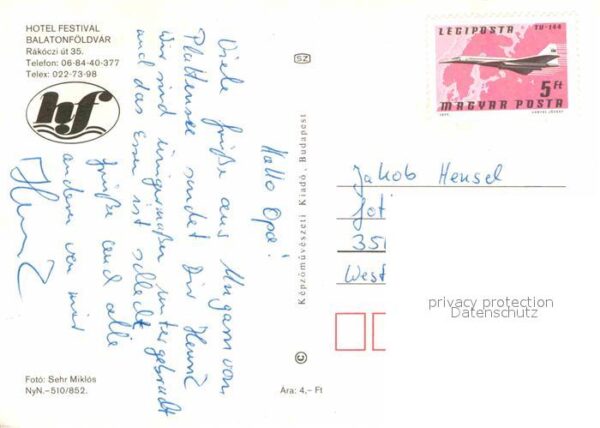 HOTEL FESTIVAL
BALATONFÖLDVÁR
Rákóczi út 35.
Telefon: 06-84-40-377
Telex: 022-73-98
hf
Hallo Opa!
Viele Grüße aus Ungarn vom
Plattensee sendet Dir
Wir sind einigermaßen untergebracht
und das Essen ist schlecht
Grüße auch alle
anderen von mir
Fotó: Sehr Miklós
NyN.–510/852.
SZ
Képzőművészeti Kiadó, Budapest
©
Ára: 4,– Ft
LÉGIPOSTA TU-144
5Ft
MAGYAR POSTA
Jakob Hensel
351
West
privacy protection
Datenschutz